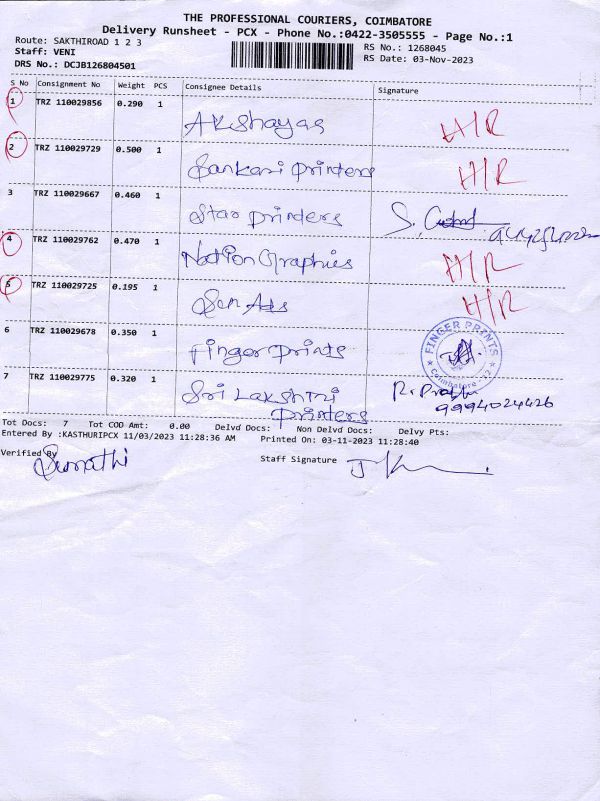 THE PROFESSIONAL COURIERS, COIMBATORE
Delivery Runsheet - PCX - Phone No.:0422-3505555 - Page No.:1
Route: SAKTHIROAD 1 2 3 RS No.: 1268045
Staff: VENI RS Date: 03-Nov-2023
DRS No.: DCJB126804501
S No Consignment No Weight PCS Consignee Details Signature
1 TRZ 110029856 0.290 1 Akshayas H/R
2 TRZ 110029729 0.500 1 Sankari Printers H/R
3 TRZ 110029667 0.460 1 Star printers S.
4 TRZ 110029762 0.470 1 Nation Graphics H/R
5 TRZ 110029725 0.195 1 Sen Ads H/R
6 TRZ 110029678 0.350 1 Finger Prints FINGER PRINTS Coimbatore - 12
7 TRZ 110029775 0.320 1 Sri Lakshmi R. Prabhu
Printers 9994024426
Tot Docs: 7 Tot COD Amt: 0.00 Delvd Docs: Non Delvd Docs: Delvy Pts:
Entered By :KASTHURIPCX 11/03/2023 11:28:36 AM Printed On: 03-11-2023 11:28:40
Verified By Sumathi Staff Signature